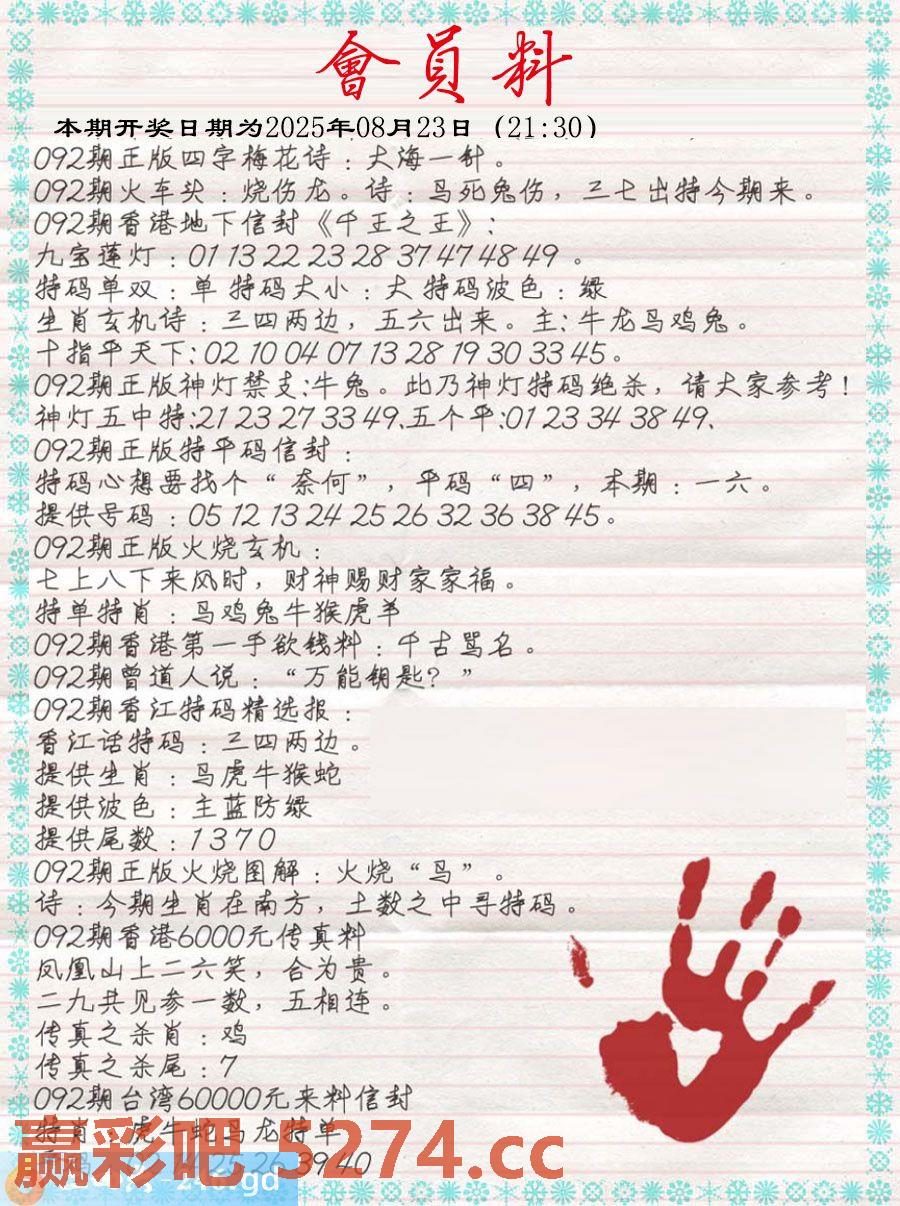 會員料
本期开奖日期为2025年08月23日（21:30）
092期正版四字梅花诗：大海一针。
092期火车头：烧伤龙。诗：鸟死兔伤，三七出特今期来。
092期香港地下信封《千王之王》：
九宝莲灯：01 13 22 23 28 37 47 48 49 。
特码单双：单 特码大小：大 特码波色：绿
生肖玄机诗：三四两边，五六出来。主：牛龙鸟鸡兔。
十指平天下：02 10 04 07 13 28 19 30 33 45。
092期正版神灯禁支：牛兔。此乃神灯特码绝杀，请大家参考！
神灯五中特：21 23 27 33 49、五个平：01 23 34 38 49、
092期正版特平码信封：
特码心想要找个“奈何”，平码“四”，本期：一六。
提供号码：05 12 13 24 25 26 32 36 38 45。
092期正版火烧玄机：
七上八下来风时，财神赐财家家福。
特单特肖：鸟鸡兔牛猴虎羊
092期香港第一手欲钱料：千古骂名。
092期曾道人说：“万能钥匙？”
092期香江特码精选报：
香江话特码：三四两边。
提供生肖：鸟虎牛猴蛇
提供波色：主蓝防绿
提供尾数：1370
092期正版火烧图解：火烧“鸟”。
诗：今期生肖在南方，土数之中寻特码。
092期香港6000元传真料
凤凰山上二六笑，合为贵。
二九共见参一数，五相连。
传真之杀肖：鸡
传真之杀尾：7
092期台湾60000元来料信封
特肖：虎牛蛇鸟龙特单
26 39 40
赢彩吧5274.cc